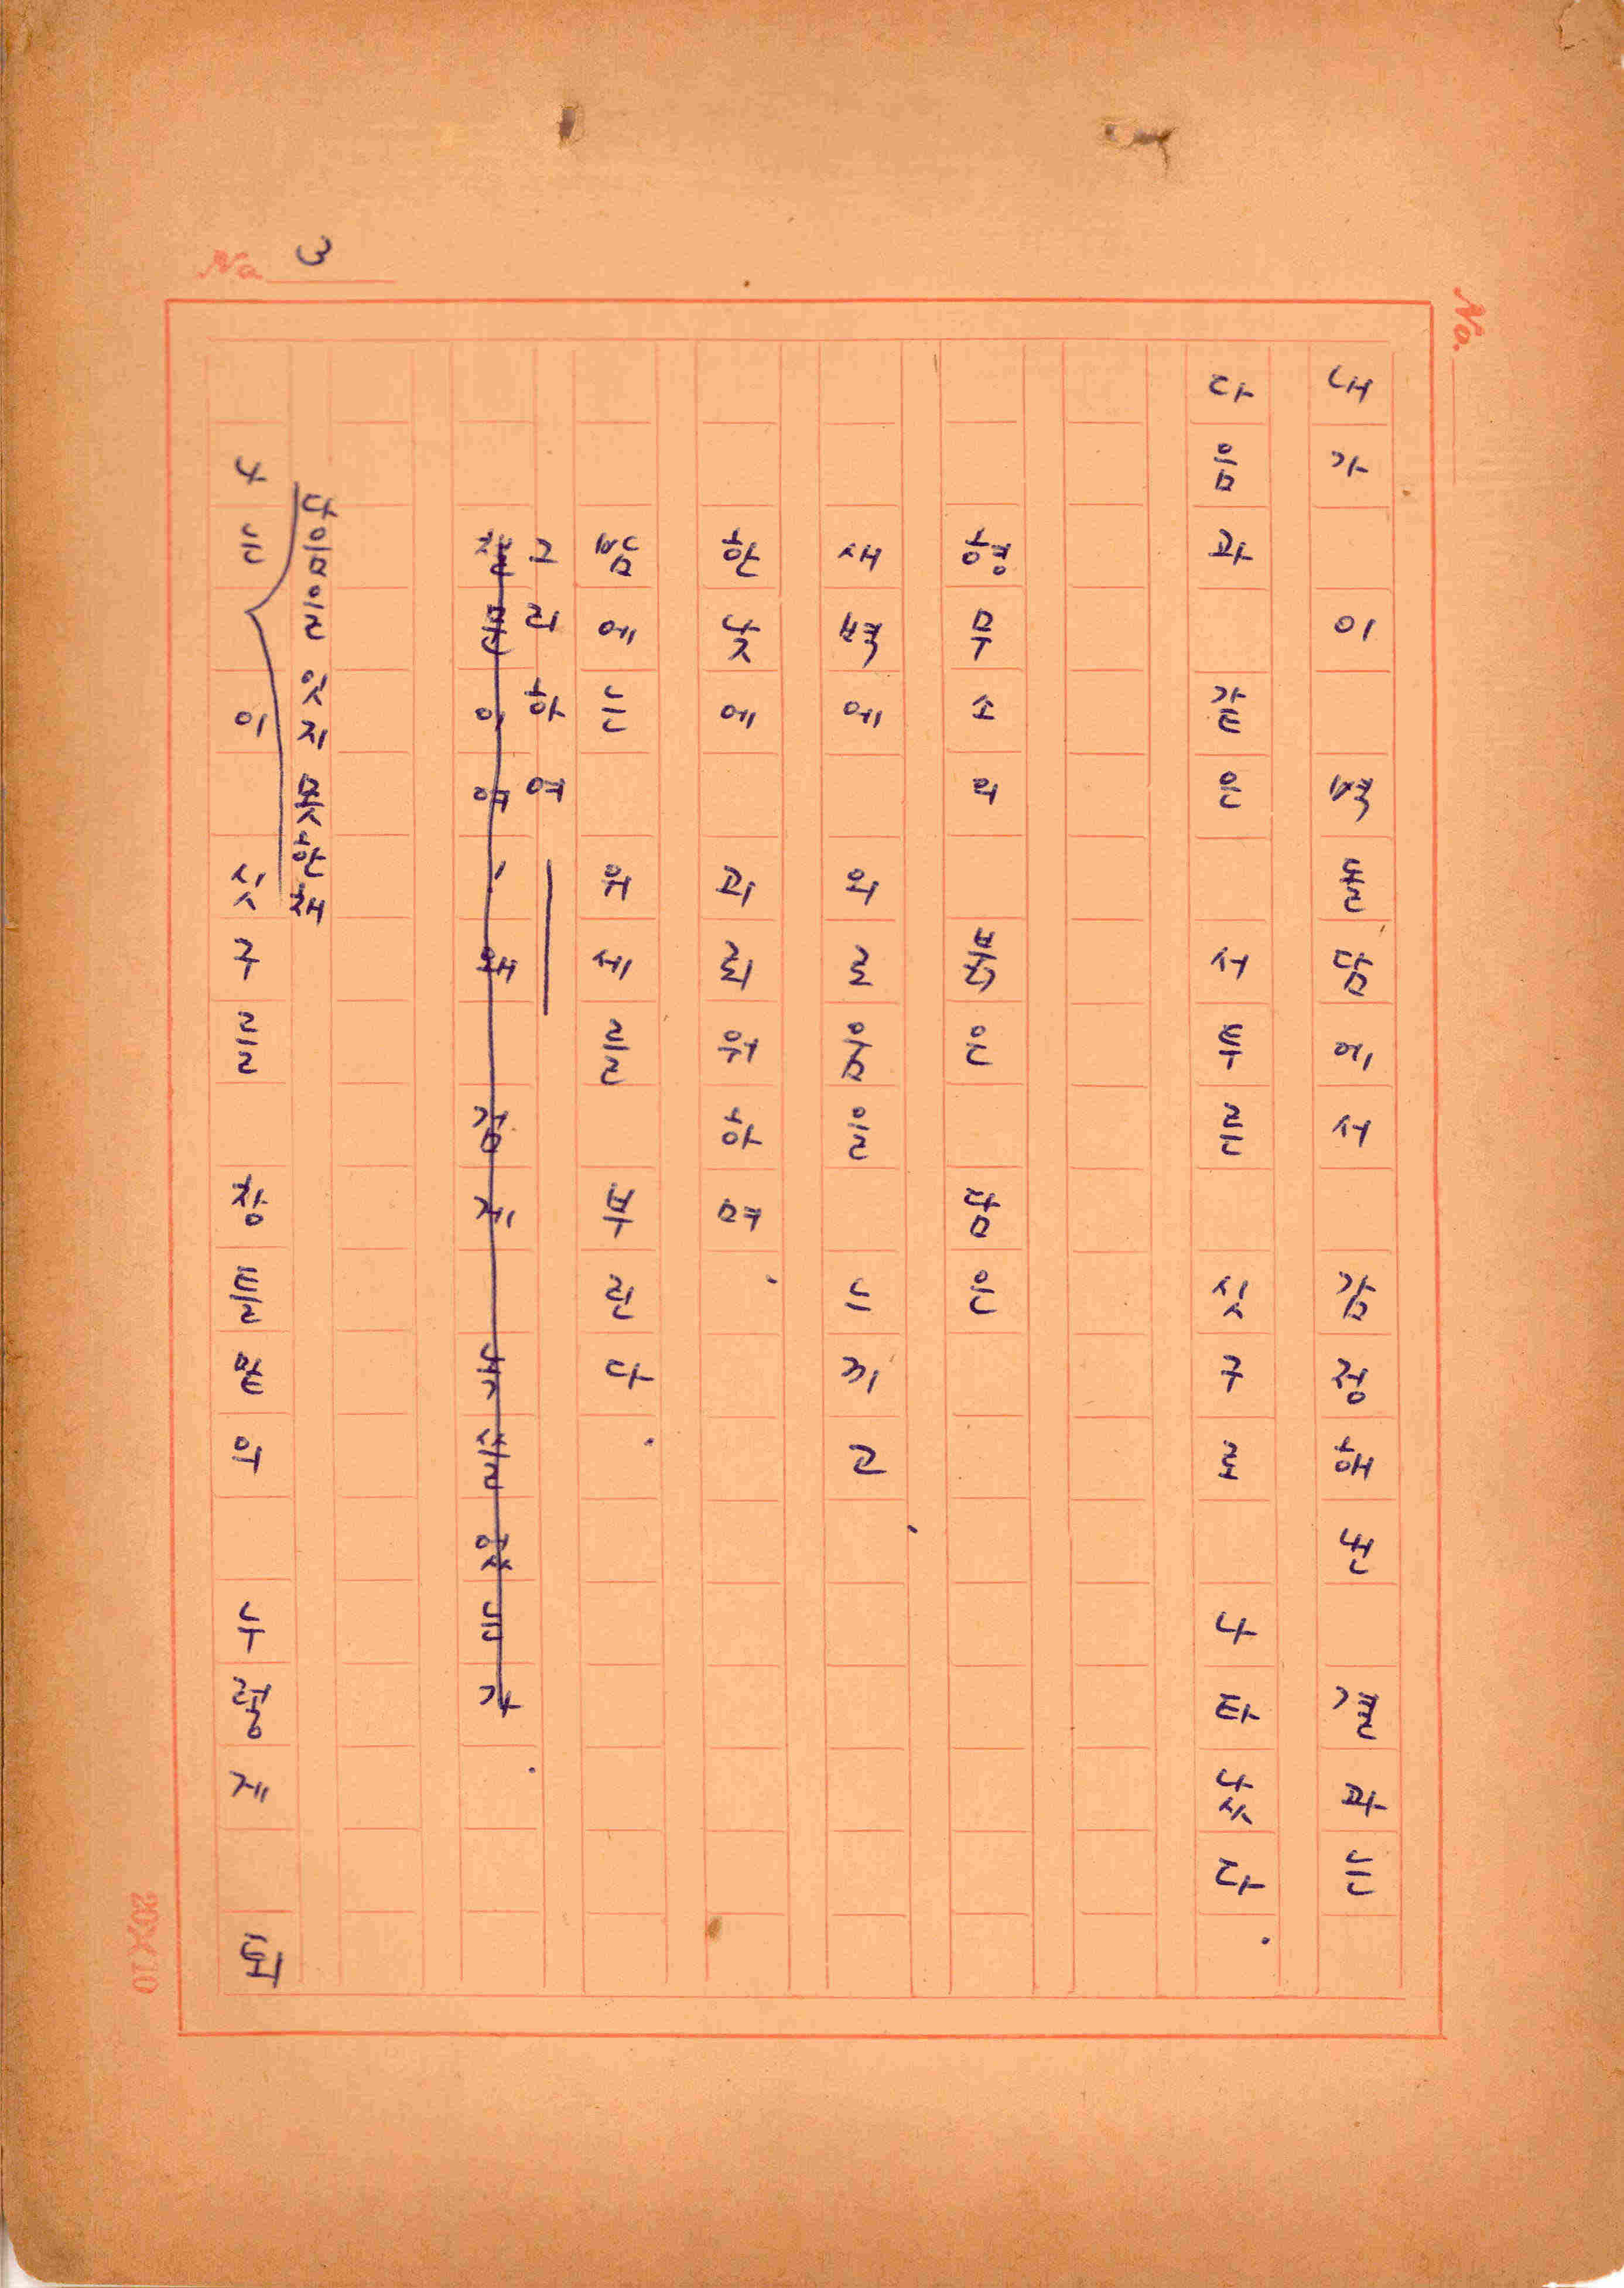 No. 3
내가 이 벽돌담에서 감정해 낸 결과는
다음과 같은 서투른 싯구로 나타났다.
형무소의 붉은 담은
새벽에 외로움을 느끼고,
한낮에 괴로워하며,
밤에는 위세를 부린다.
그리하여 —
철문이여, 왜 검게 녹슬었는가.
다음을 잇지 못한채
나는 이 싯구를 창틀맡의 누렇게 퇴
No.
20X10